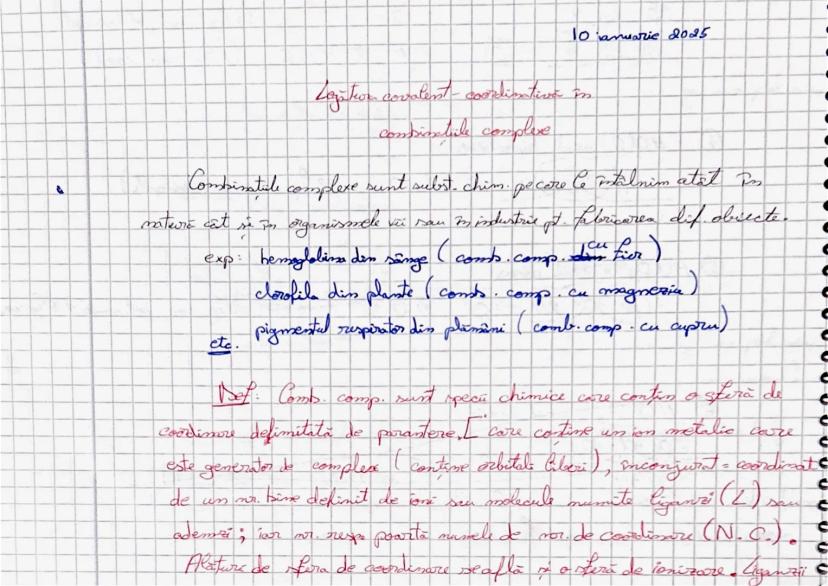 10 ianuarie 2025
Legătura covalent-coordinativă în
combinațiile complexe
Combinațiile complexe sunt subst. chim. pe care le întâlnim atât în
natură cât și în organismele vii sau în industrie pt. fabricarea dif. obiecte.
exp: hemoglobina din sânge (comb. comp. cu fier)
clorofila din plante (comb. comp. cu magneziu)
pigmentul respirator din plămâni (comb. comp. cu cupru)
etc.
Def: Comb. comp. sunt specii chimice care conțin o sferă de
coordinare delimitată de paranteze, [ care conține un ion metalic care
este generator de complex (conține orbitali liberi), înconjurat = coordinat
de un nr. bine definit de ioni sau molecule numite liganzi (L) sau
ademzi; iar nr. resp. poartă numele de nr. de coordinare (N.C.).
Alături de sfera de coordinare se află și o sferă de ionizare. Liganzii